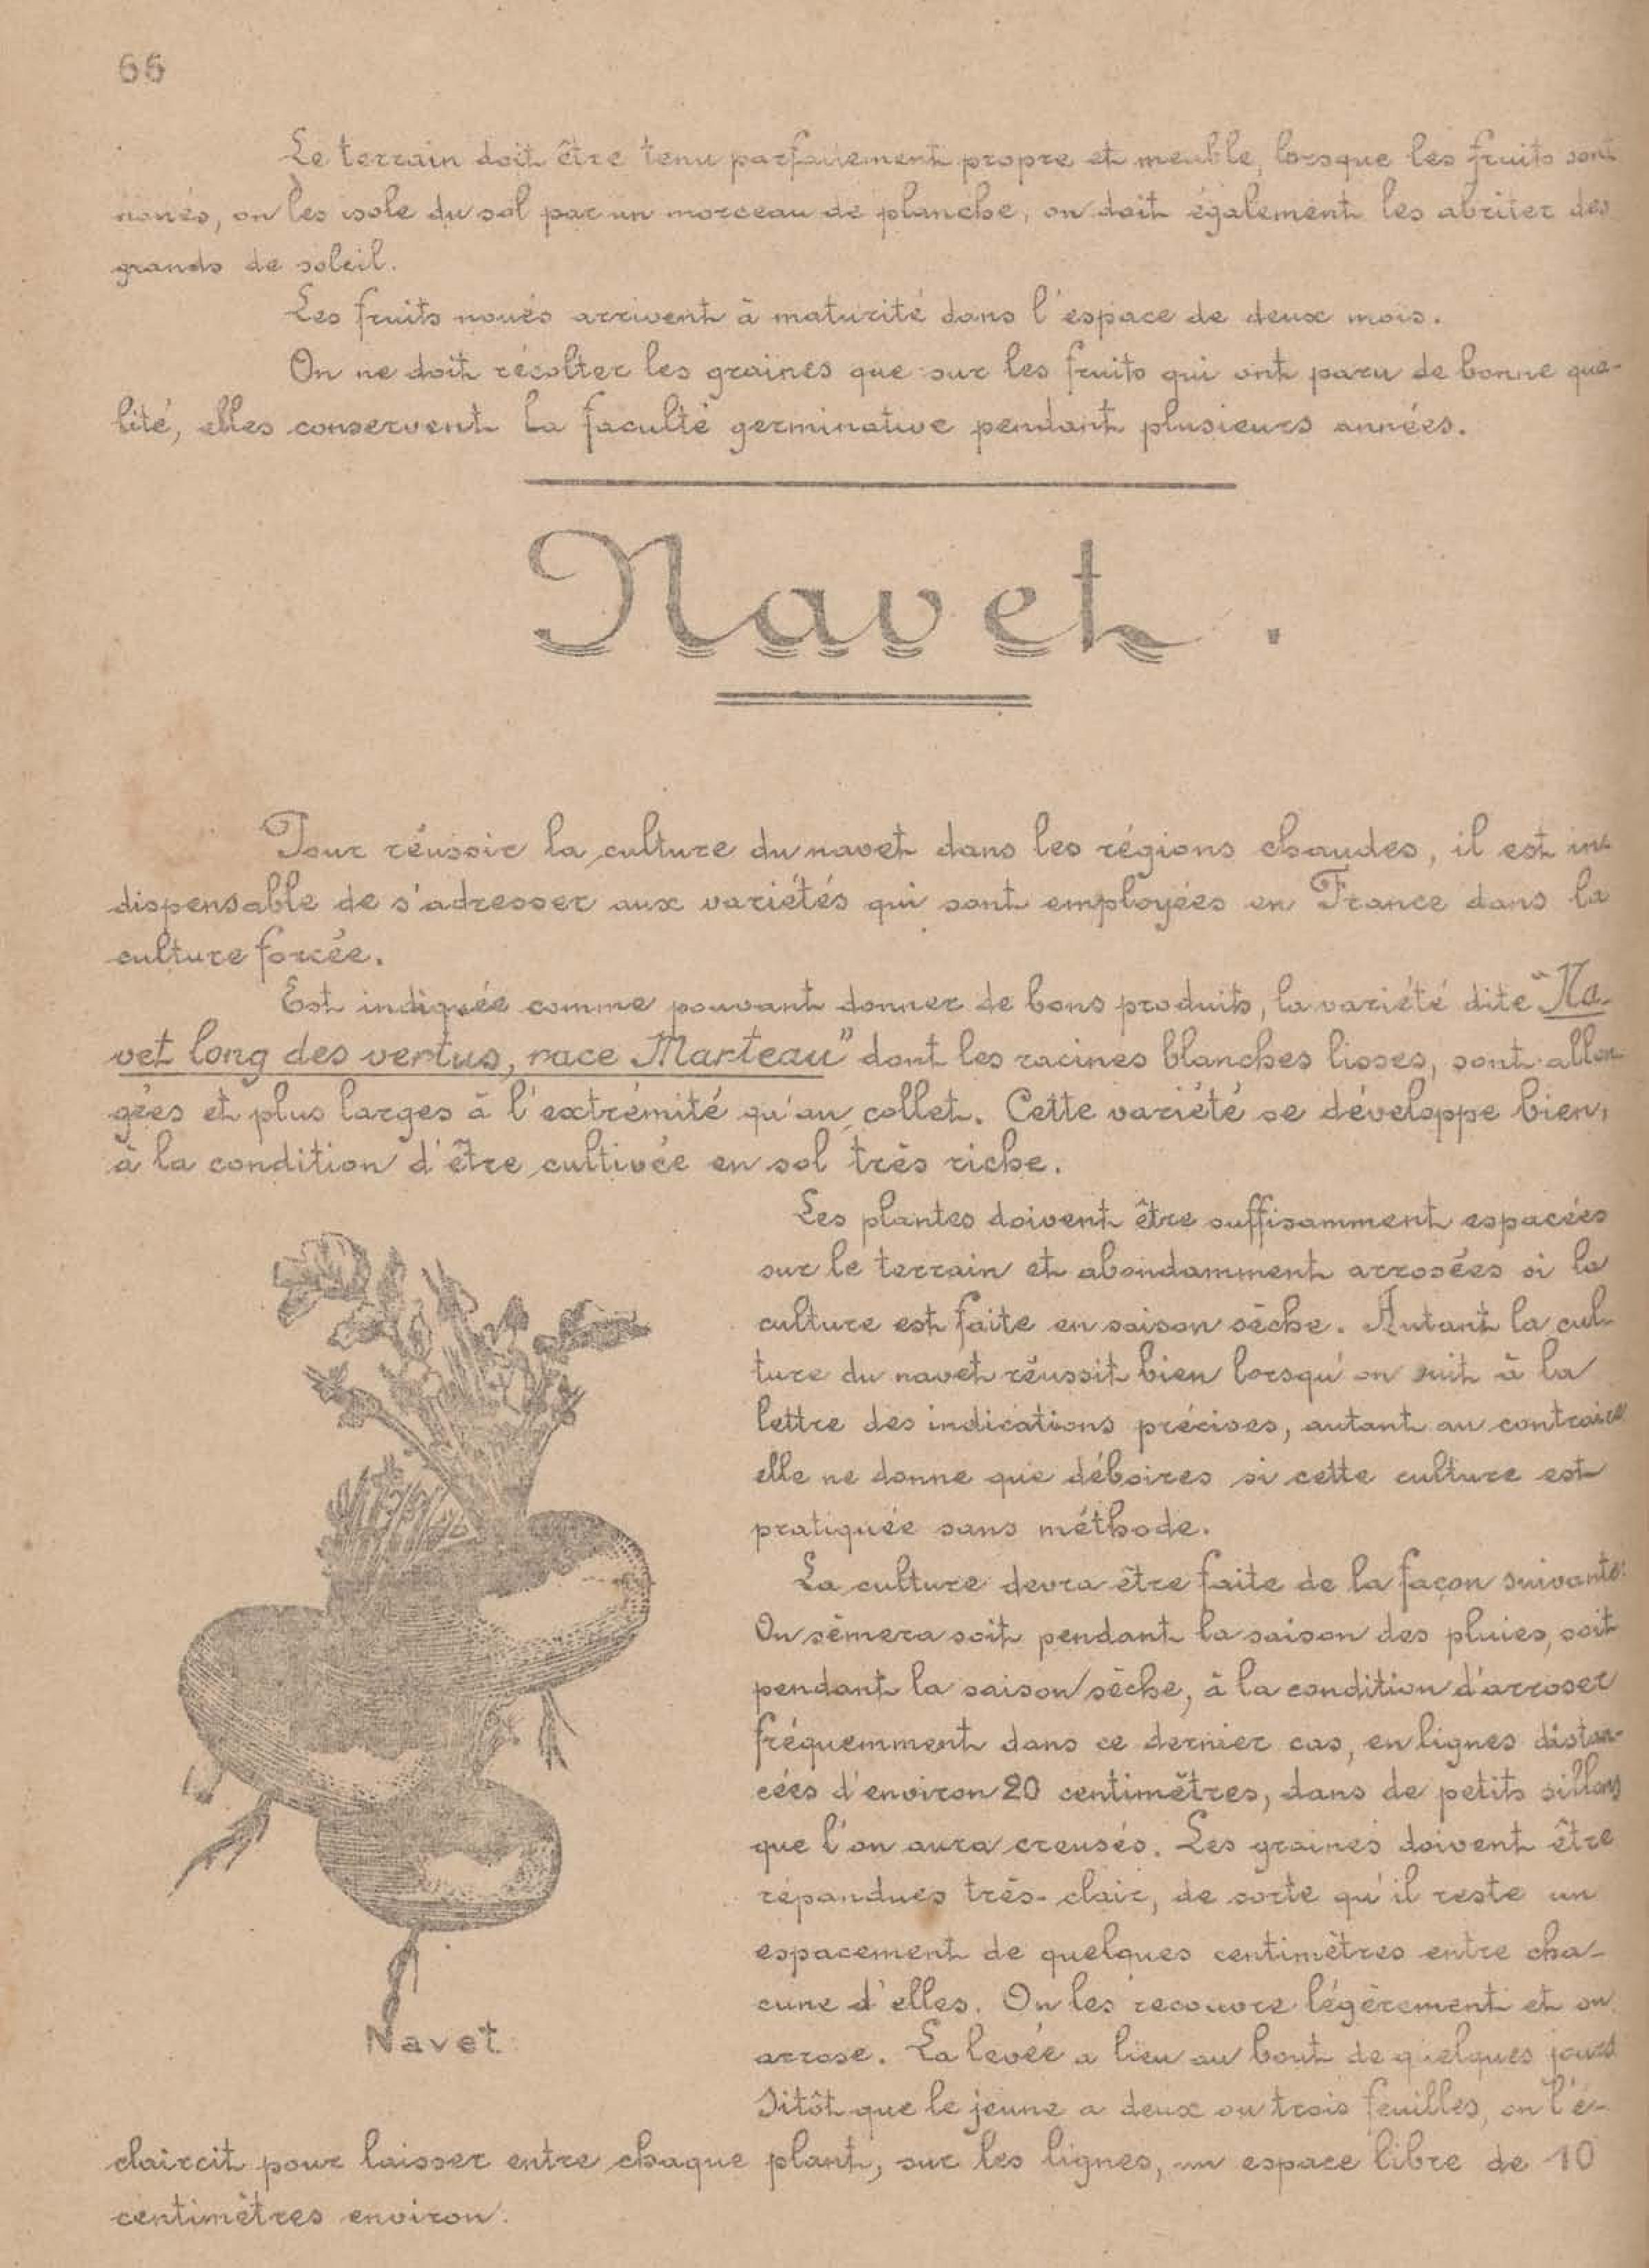 66
Le terrain doit être tenu parfaitement propre et meuble, lorsque les fruits sont
noués, on les isole du sol par un morceau de planche, on doit également les abriter des
grands de soleil.
Les fruits noués arrivent à maturité dans l'espace de deux mois.
On ne doit récolter les graines que sur les fruits qui ont paru de bonne qua-
lité, elles conservent la faculté germinative pendant plusieurs années.
Navet.
Pour réussir la culture du navet dans les régions chaudes, il est in-
dispensable de s'adresser aux variétés qui sont employées en France dans la
culture forcée.
Est indiquée comme pouvant donner de bons produits, la variété dite "Na-
vet long des vertus, race Marteau" dont les racines blanches lisses, sont allon-
gées et plus larges à l'extrémité qu'au collet. Cette variété se développe bien,
à la condition d'être cultivée en sol très riche.
Les plantes doivent être suffisamment espacées
sur le terrain et abondamment arrosées si la
culture est faite en saison sèche. Autant la cul-
ture du navet réussit bien lorsqu'on suit à la
lettre des indications précises, autant au contraire
elle ne donne que déboires si cette culture est
pratiquée sans méthode.
La culture devra être faite de la façon suivante:
On sèmera soit pendant la saison des pluies, soit
pendant la saison sèche, à la condition d'arroser
fréquemment dans ce dernier cas, en lignes distan-
cées d'environ 20 centimètres, dans de petits sillons
que l'on aura creusés. Les graines doivent être
répandues très-clair, de sorte qu'il reste un
espacement de quelques centimètres entre cha-
cune d'elles. On les recouvre légèrement et on
arrose. La levée a lieu au bout de quelques jours
Sitôt que le jeune a deux ou trois feuilles, on l'é-
claircit pour laisser entre chaque plant, sur les lignes, un espace libre de 10
centimètres environ.
Navet